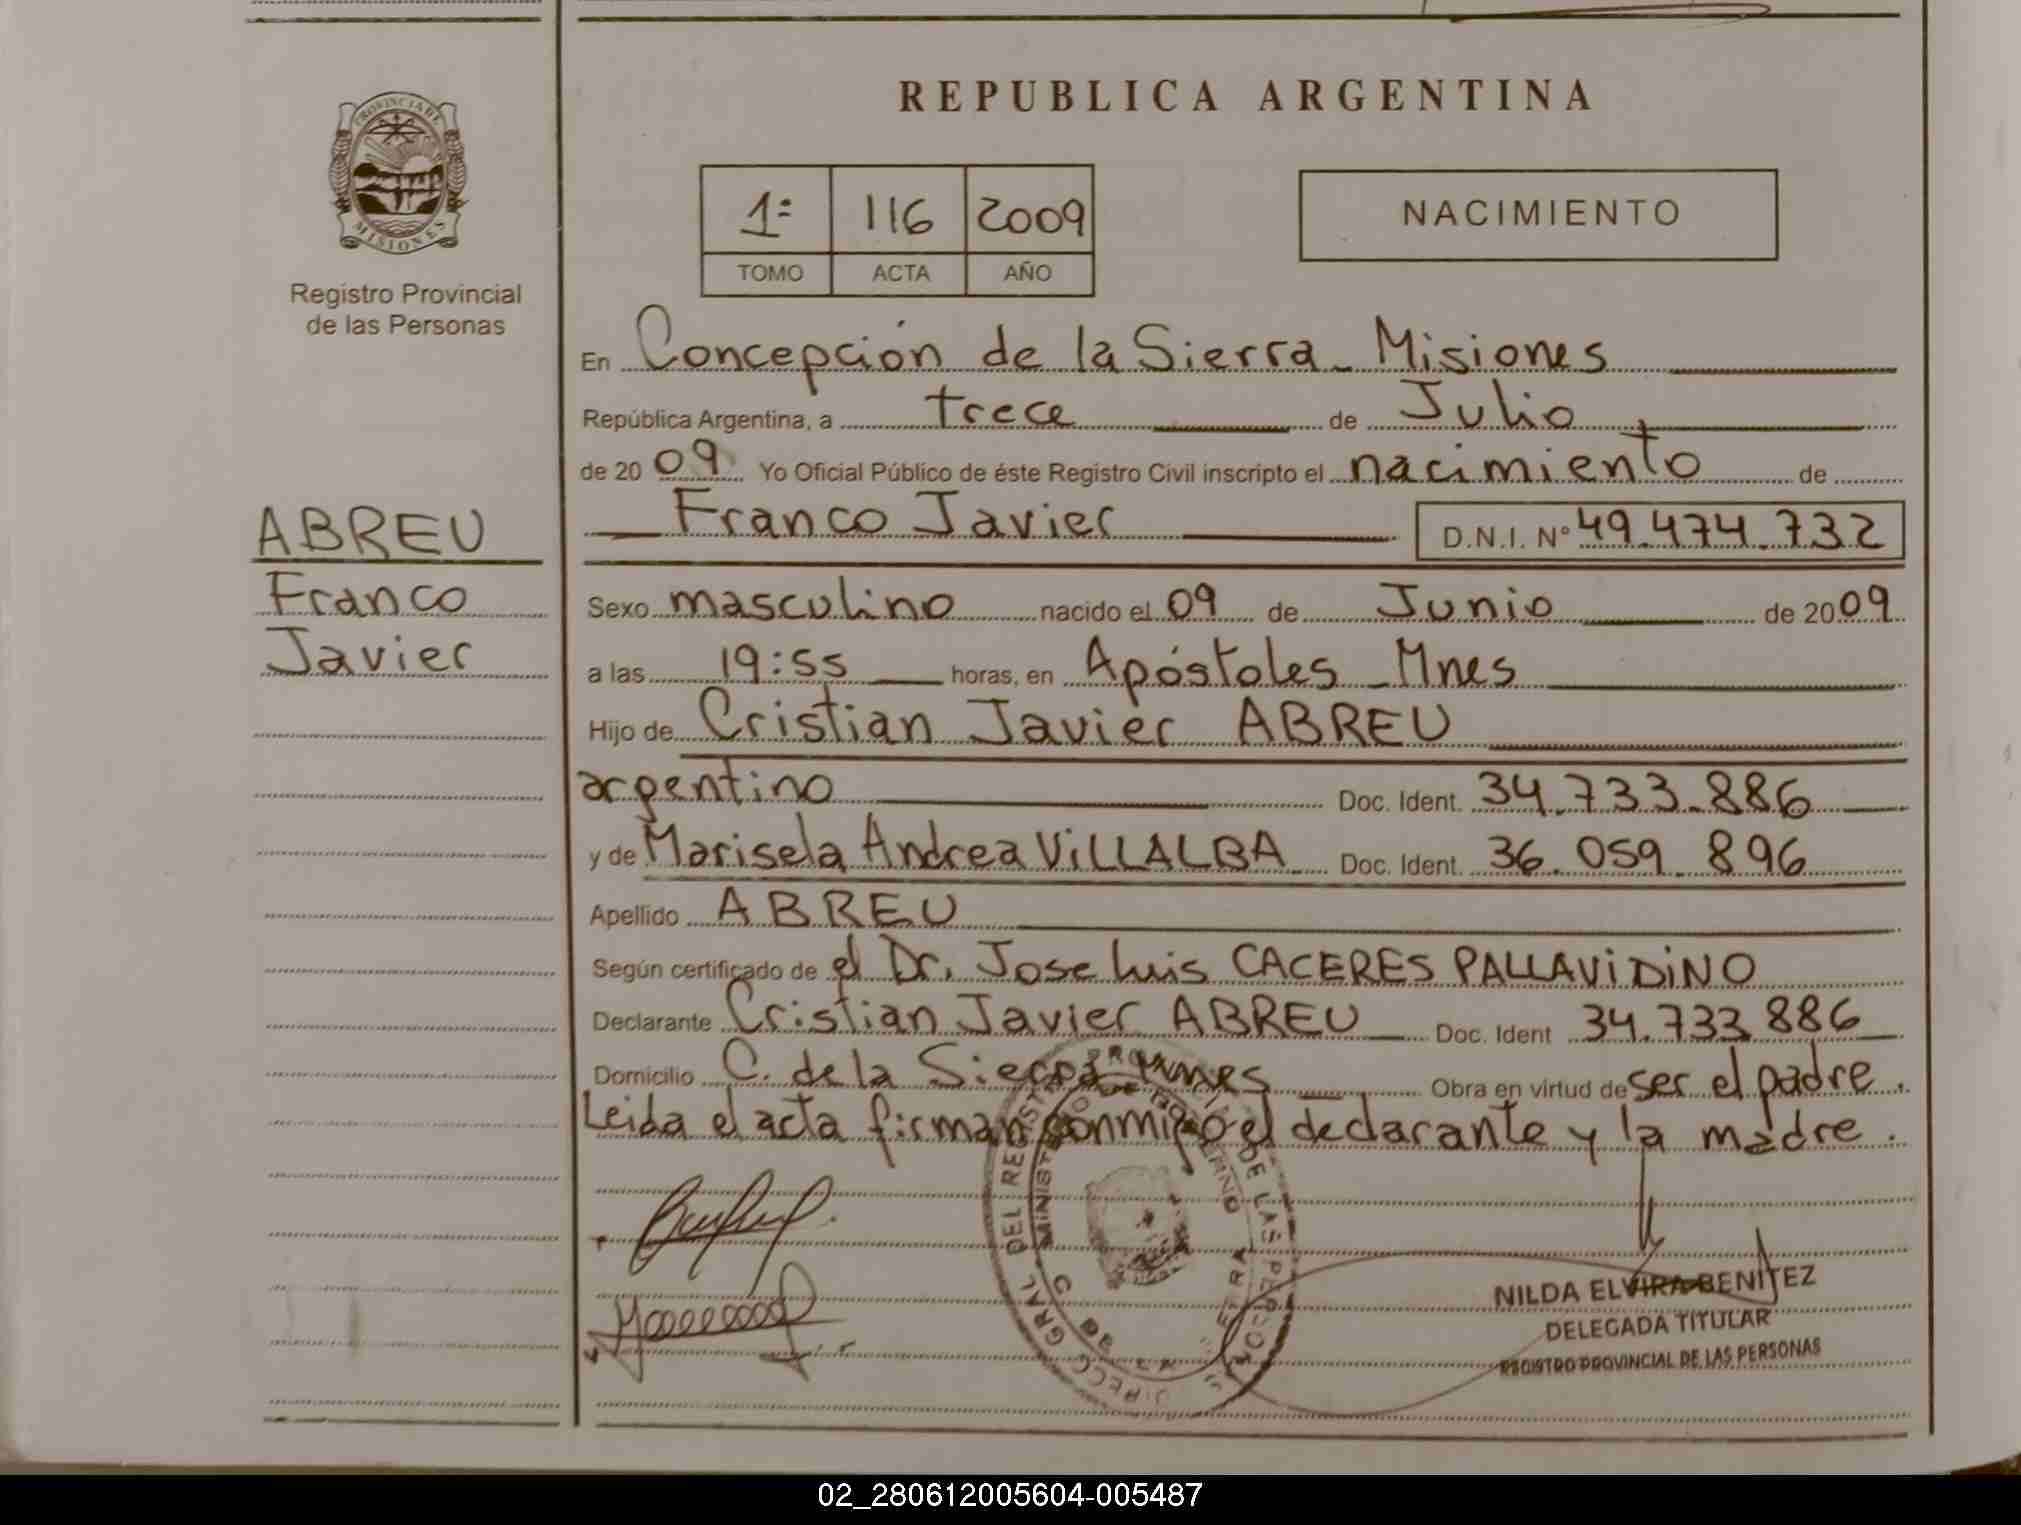 REPUBLICA ARGENTINA
PROVINCIA DE
MISIONES
Registro Provincial
de las Personas
1º 116 2009
TOMO ACTA AÑO
NACIMIENTO
En Concepción de la Sierra - Misiones
República Argentina, a trece de Julio
de 2009 Yo Oficial Público de éste Registro Civil inscripto el nacimiento de
Franco Javier D.N.I. Nº 49.474.732
ABREU
Franco
Javier
Sexo masculino nacido el 09 de Junio de 2009
a las 19:55 horas, en Apóstoles - Mnes
Hijo de Cristian Javier ABREU
argentino Doc. Ident. 34.733.886
y de Marisela Andrea ViLLALBA Doc. Ident. 36.059.896
Apellido ABREU
Según certificado de el Dr. Jose Luis CACERES PALLAViDiNO
Declarante Cristian Javier ABREU Doc. Ident 34.733.886
Domicilio C. de la Sierra Mnes Obra en virtud de ser el padre.
Leida el acta firman conmigo el declarante y la madre.
NILDA ELVIRA BENITEZ
DELEGADA TITULAR
REGISTRO PROVINCIAL DE LAS PERSONAS
02_280612005604-005487